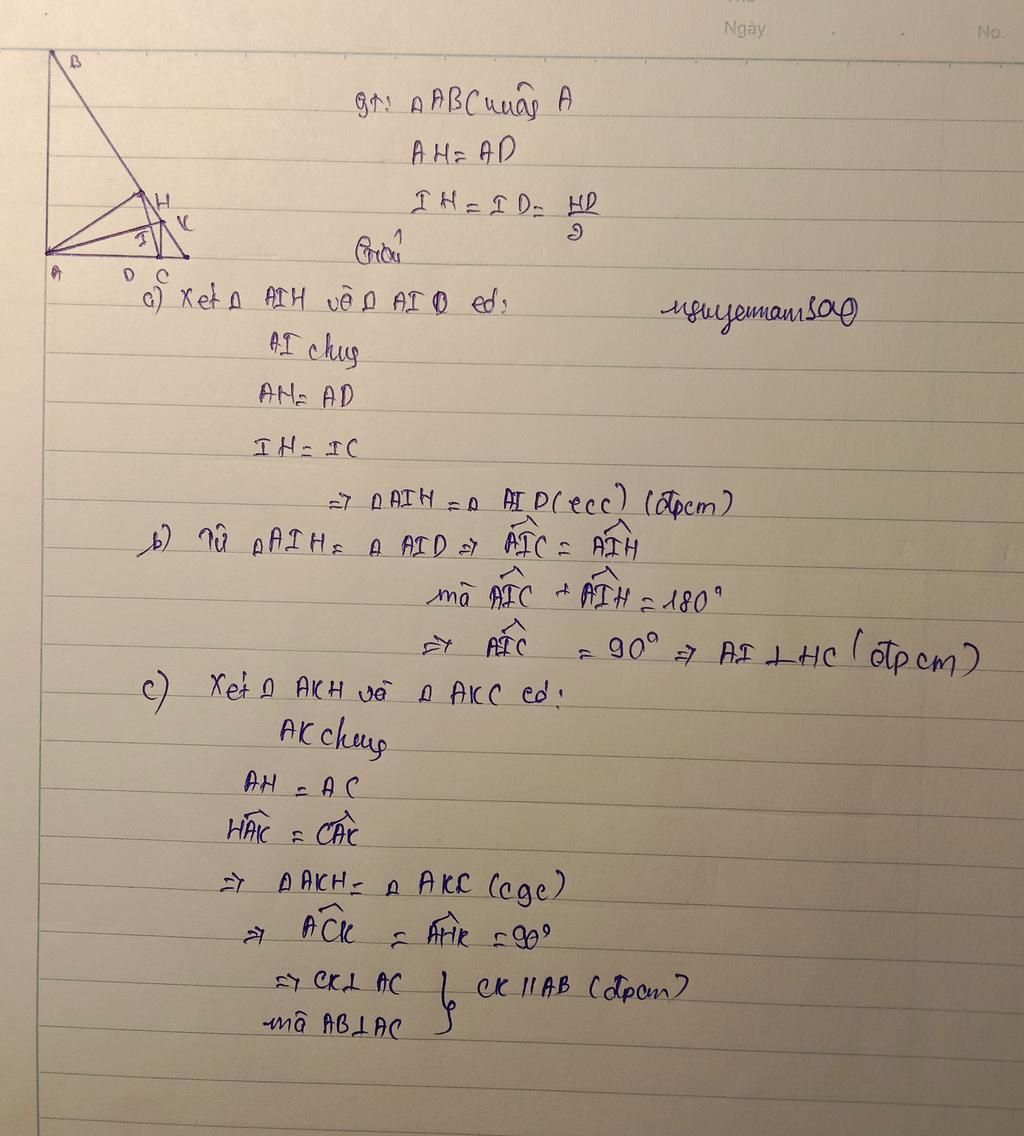 Ngày
No.
B
gt: Δ ABC vuông A
AH = AD
IH = ID = HD/2
H
K
I
A D C
Giải
a) Xét Δ AIH và Δ AID có:
nguyennam
AI chung
AH = AD
IH = IC
=> Δ AIH = Δ AID (ccc) (đpcm)
b) Từ Δ AIH = Δ AID => AIC^ = AIH^
mà AIC^ + AIH^ = 180°
=> AIC^ = 90° => AI ⊥ HC (đpcm)
c) Xét Δ AKH và Δ AKC có:
AK chung
AH = AC
HAK^ = CAK^
=> Δ AKH = Δ AKC (cgc)
=> ACK^ = AHK^ = 90°
=> CK ⊥ AC } CK // AB (đpcm)
mà AB ⊥ AC